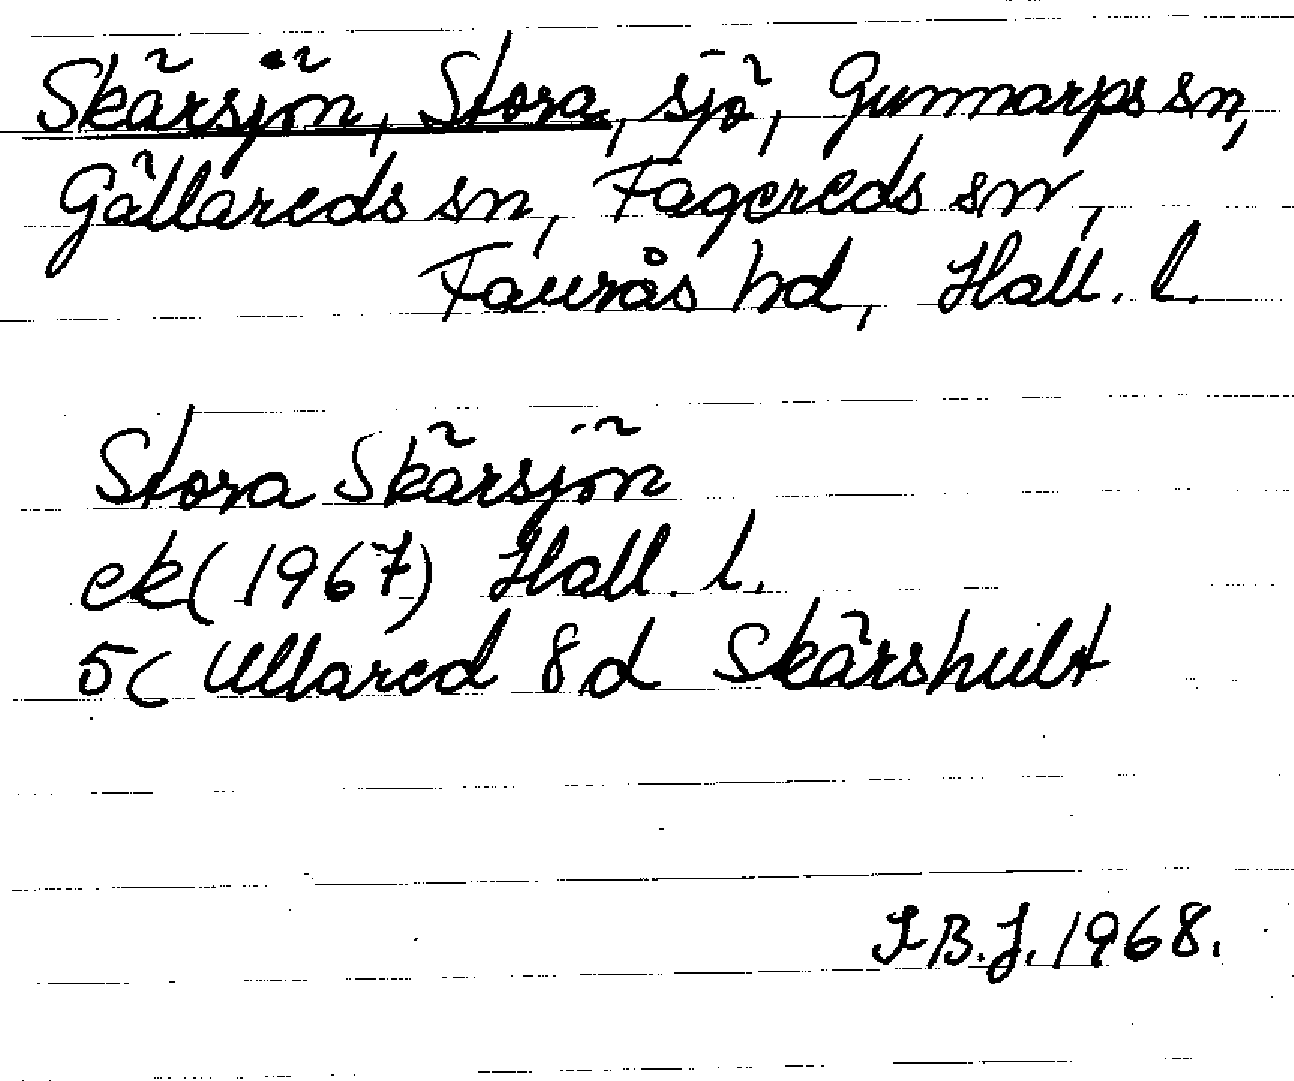 Skärsjön, Stora, sjö, Gunnarps sn,
Gällareds sn, Fagereds sn,
Faurås hd, Hall. l.
Stora Skärsjön
ek (1967) Hall. l.
5C Ullared 8d Skärshult
I.B.J. 1968.